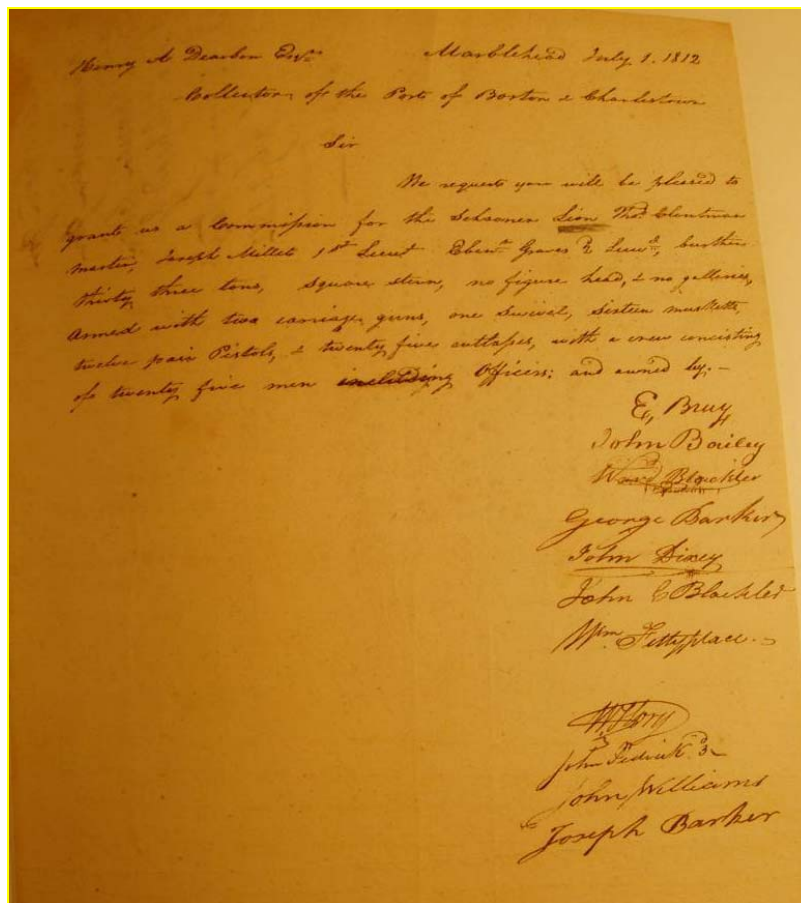 Henry A Dearbon Esqr Marblehead July 1. 1812
Collector of the Ports of Boston & Charlestown
Sir
We request you will be pleased to
grant us a Commission for the Schooner Lion Thos. Cloutman
master, Joseph Millet 1st Lieut Ebenr. Graves 2 Lieut, burthen
thirty three tons, square stern, no figure head, & no galleries,
armed with two carriage guns, one swivel, sixteen musketts,
twelve pair Pistols, & twenty five cutlases, with a crew concisting
of twenty five men including Officers; and owned by. —
John Bailey
Ward Blackler
George Barker
John Dixey
John C Blackler
Wm. Fettyplace. -
John Pedrick 3
John Williams
Joseph Barker